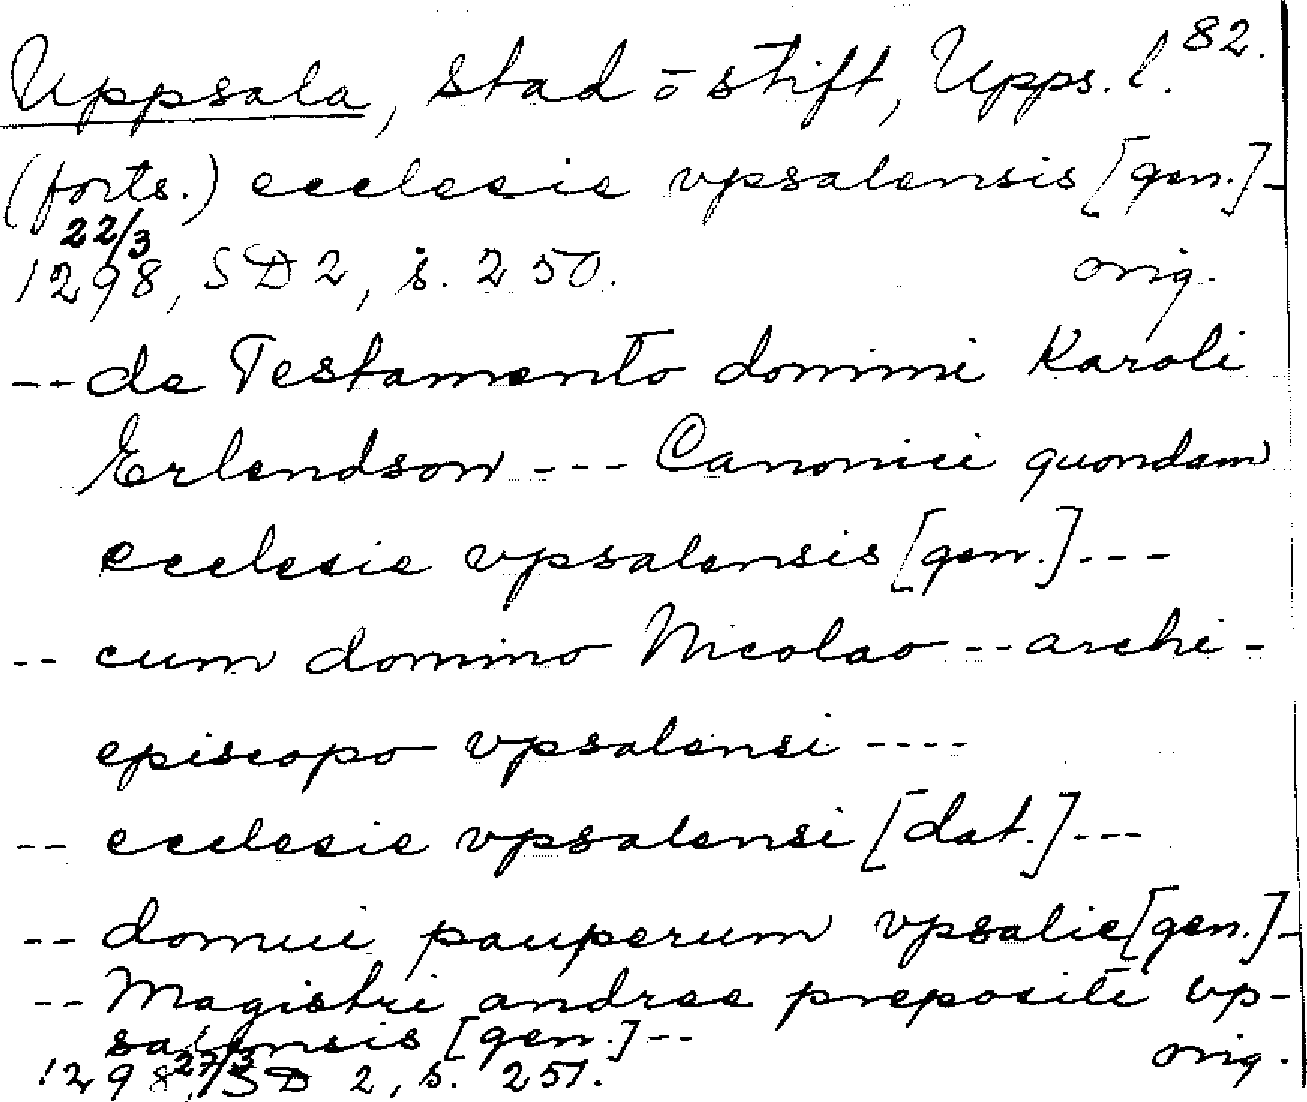 Uppsala, stad o stift, Upps. l. 82.
(forts.) ecclesie vpsalensis [gen.]-
22/3
1298, SD 2, s. 250. orig.
-- de Testamento domini Karoli
Erlendson --- Canonici quondam
ecclesie vpsalensis [gen.]---
-- cum domino Nicolao -- archi-
episcopo vpsalensi ----
-- ecclesie vpsalensi [dat.]---
-- domui pauperum vpsalie [gen.]-
-- Magistri andree prepositi vp-
salensis [gen.]--
27/3
1298, SD 2, s. 251. orig.